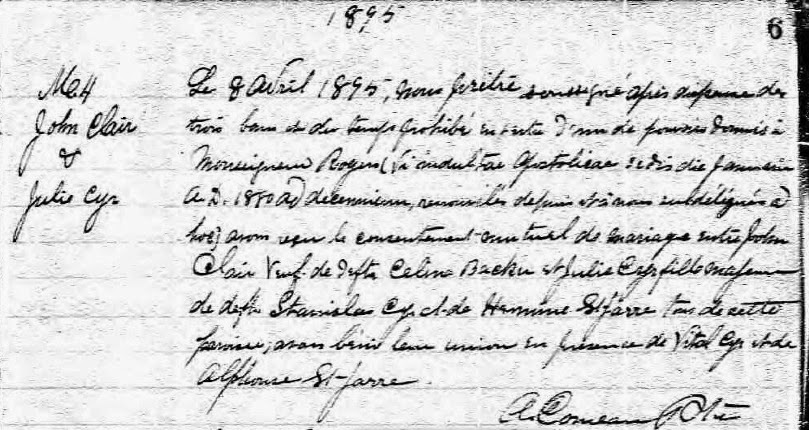 1895
6
M.4
John Clair
&
Julie Cyr
Le 8 Avril 1895, nous prêtre soussigné après dispense des
trois bans et du temps prohibé en vertu de pouvoirs donnés à
Monseigneur Rogers (Vi indultae Apostolicae sedis die Januarii
A.D. 1880 ad decennium, renouvelés depuis et à nous subdélégués ad
hoc) avons reçu le consentement mutuel de mariage entre John
Clair Veuf de defte Celina et Julie Cyr fille majeure
de deft Stanislas Cyr et de Hermine St-Jarre tous de cette
paroisse, avons béni leur union en présence de Vital Cyr et de
Alphonse St-Jarre.
A. Comeau Ptre